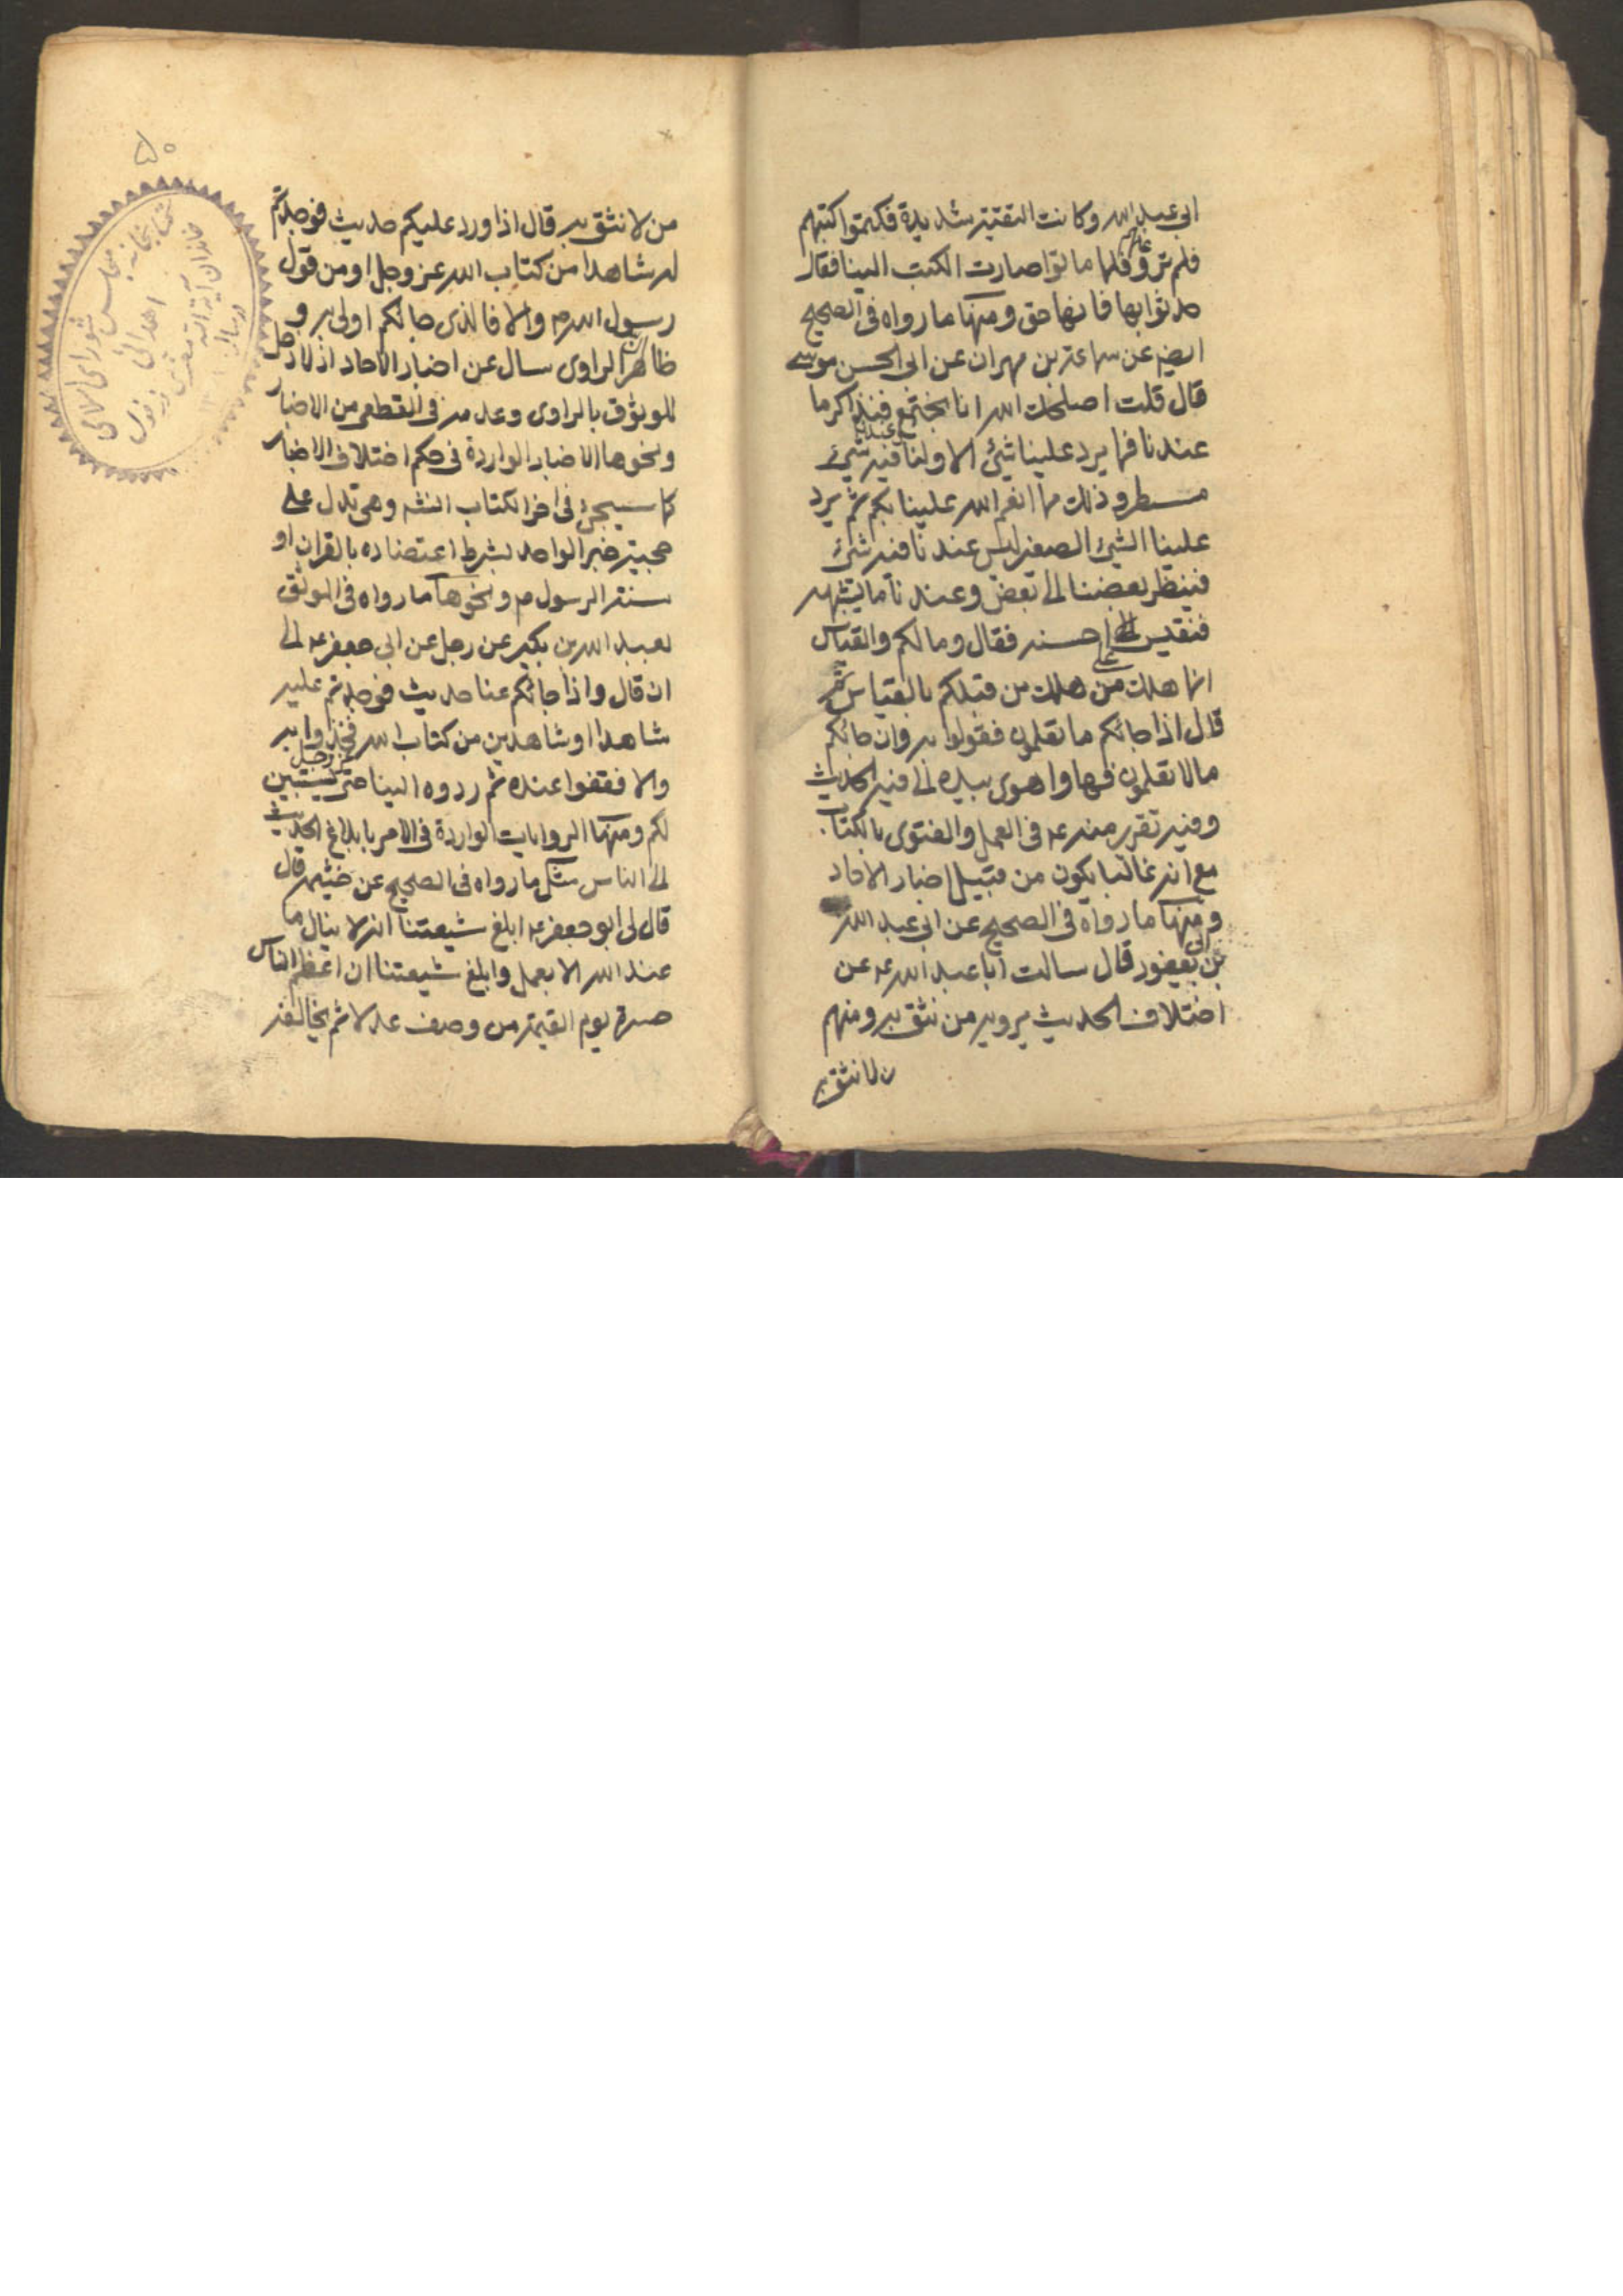 ابي عبد الله وكانت التقية شديدة فكتموا كتبهم
فلم ترو عنهم فلما ماتوا صارت الكتب الينا فقال
حدثوا بها فانها حق ومنها ما رواه في الصحيح
ايضا عن سماعة بن مهران عن ابي الحسن موسى
قال قلت اصلحك الله انا نجتمع فنتذاكر ما
عندنا فما يرد علينا شئ الا ولنا فيه شئ
مسطر وذلك مما انعم الله علينا بكم ثم يرد
علينا الشئ الصغير ليس عندنا فيه شئ
فينظر بعضنا الى بعض وعندنا ما يشبهه
فنقيس على احسنه فقال وما لكم والقياس
انما هلك من هلك من قبلكم بالقياس ثم
قال اذا جائكم ما تعلمون فقولوا به وان جائكم
ما لا تعلمون فها واهوى بيده الى فيه الحديث
وفيه تقرير منه ع في العمل والفتوى بالكتاب
مع انه غالبا يكون من قبيل اخبار الاحاد
ومنها ما رواه في الصحيح عن ابي عبد الله
بن ابي يعفور قال سالت ابا عبد الله ع عن
اختلاف الحديث يرويه من نثق به ومنهم
من لا نثق به
۵۰
من لا نثق به قال اذا ورد عليكم حديث فوجدتم
له شاهدا من كتاب الله عز وجل او من قول
رسول الله ص والا فالذي جائكم اولى به و
ظاهر الراوي سال عن اخبار الاحاد اذ لا دخل
للوثوق بالراوي وعدمه في القطعي من الاخبار
ونحوها الاخبار الواردة في حكم اختلاف الاخبار
كما سيجئ في اخر الكتاب انشه وهي تدل على
حجية خبر الواحد بشرط اعتضاده بالقران او
سنة الرسول ص ونحوها ما رواه في الموثق
لعبد الله بن بكير عن رجل عن ابي جعفر ع الى
ان قال واذا جائكم عنا حديث فوجدتم عليه
شاهدا او شاهدين من كتاب الله عز وجل فخذوا به
والا فقفوا عنده ثم ردوه الينا حتى يستبين
لكم ومنها الروايات الواردة في الامر بابلاغ الحديث
الى الناس مثل ما رواه في الصحيح عن خثيمه قال
قال لي ابو جعفر ع ابلغ شيعتنا انه لا ينال ما
عند الله الا بعمل وابلغ شيعتنا ان اعظم الناس
حسرة يوم القيمة من وصف عدلا ثم يخالفه
كتابخانه مجلس شوراى اسلامى
اهدائى